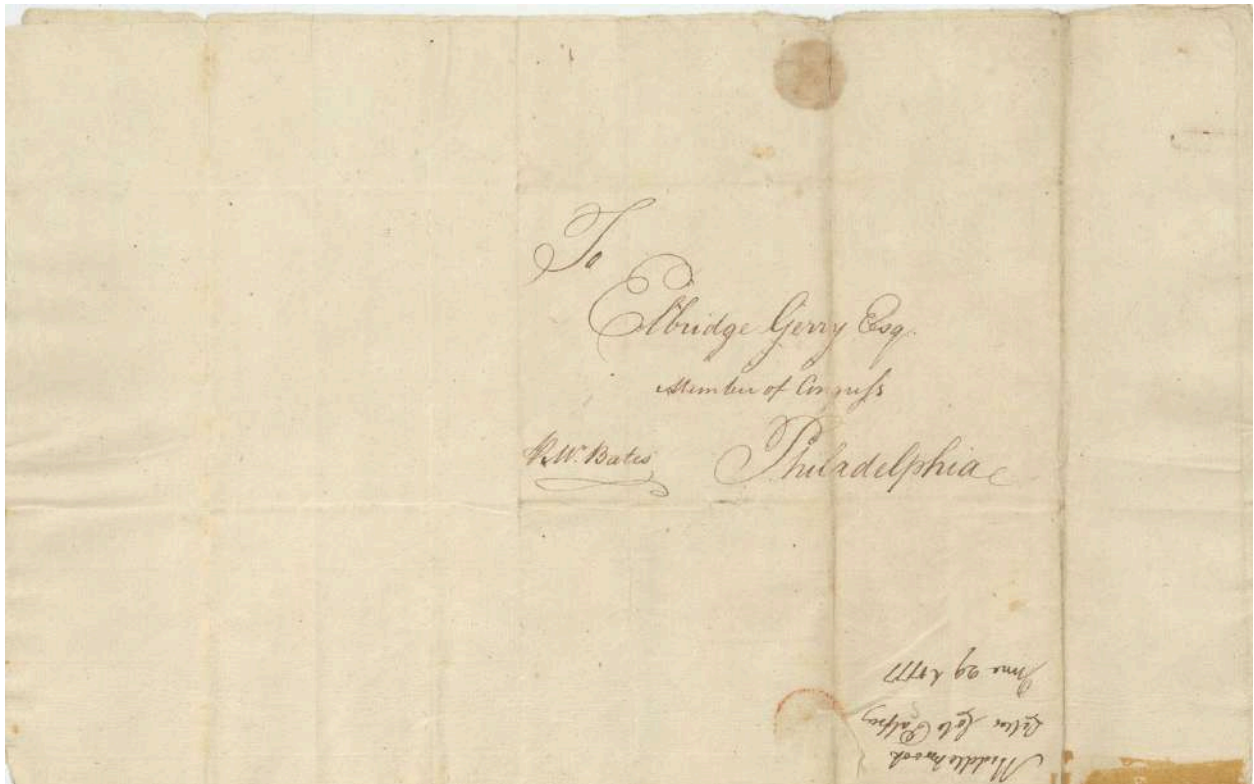 To
Elbridge Gerry Esq.
Member of Congress
Pr. Mr. Bates
Philadelphia
Middlebrook
Letter Colo Palfrey
June 29th 1777